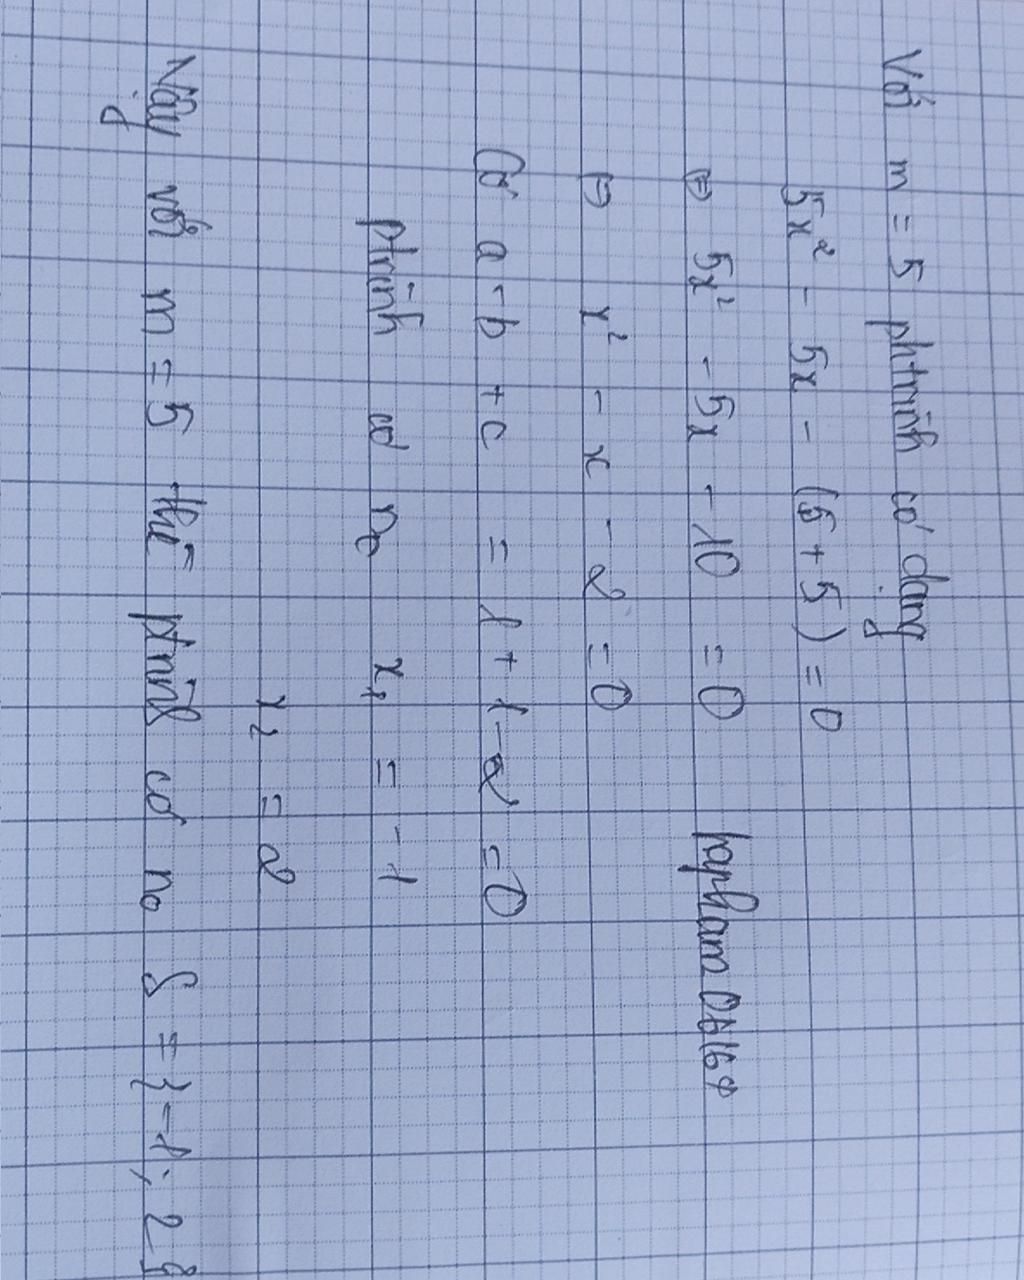 Với m = 5 phtrình có dạng
5x² - 5x - (5 + 5) = 0
⇔ 5x² - 5x - 10 = 0
lapham06169
⇔ x² - x - 2 = 0
Có a - b + c = 1 + 1 - 2 = 0
ptrình có no x₁ = -1
x₂ = 2
Vậy với m = 5 thì ptrình có no S = {-1; 2}